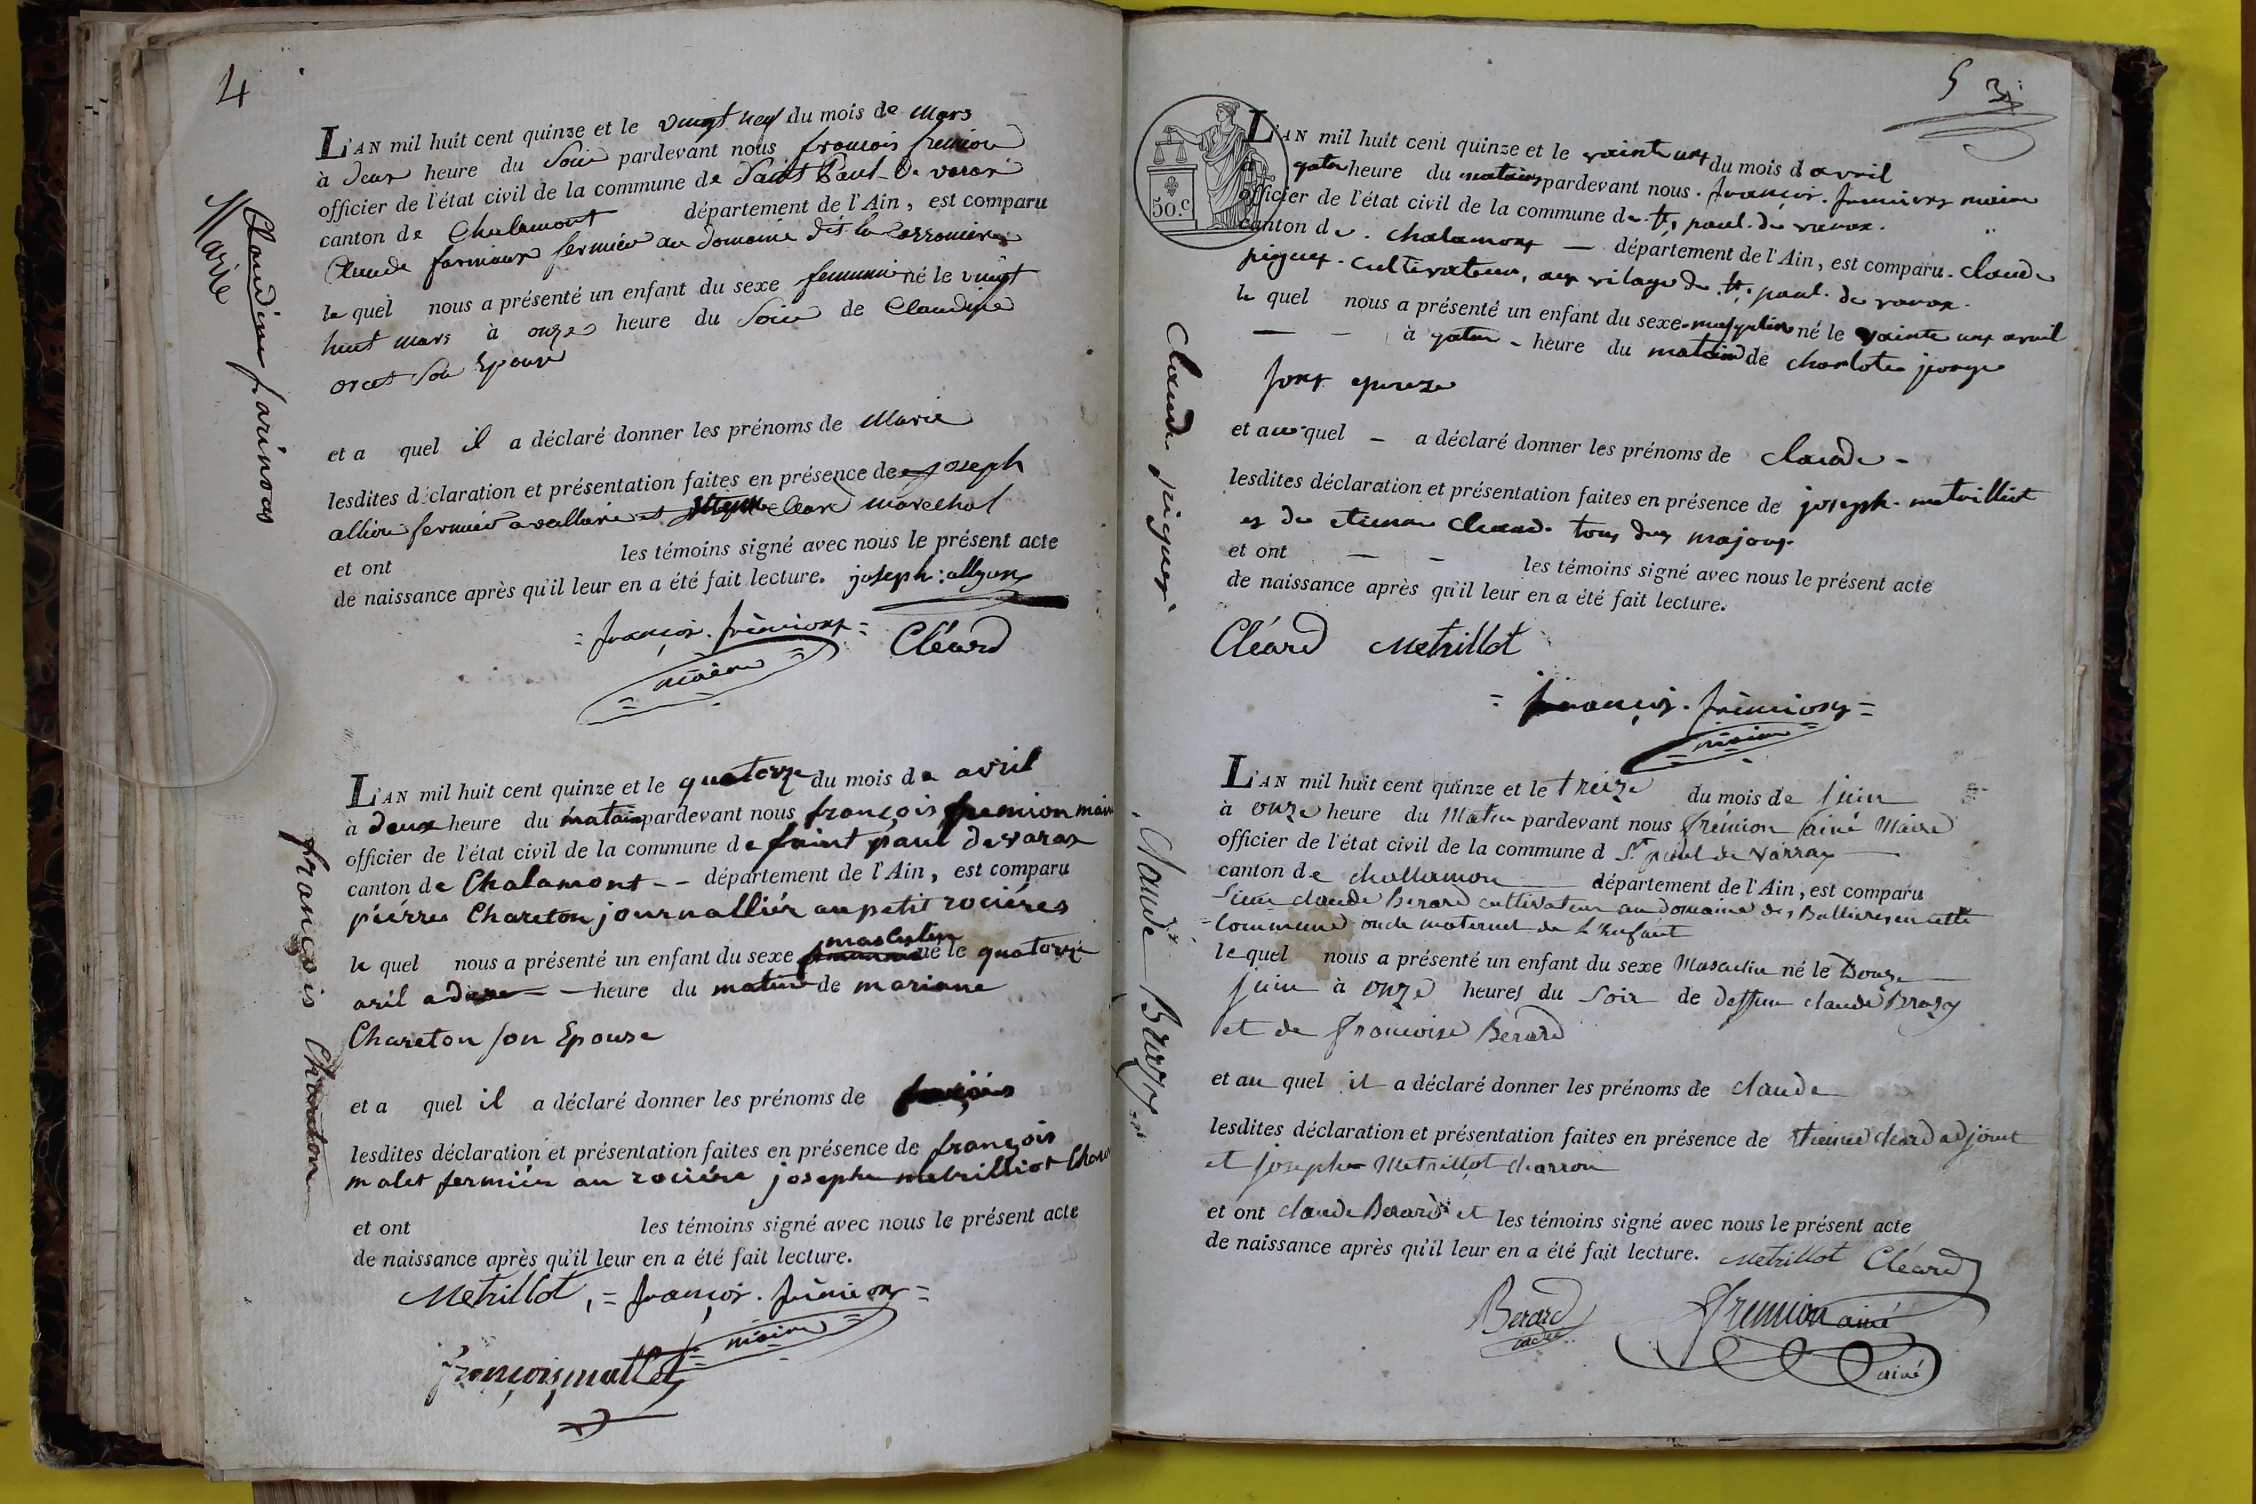 4
L'AN mil huit cent quinze et le vingt neuf du mois de Mars
à deux heure du Soir pardevant nous françois fremion
officier de l'état civil de la commune de Saint Paul de varax
canton de Chalamont département de l'Ain, est comparu
Claude farinaux fermier au domaine dit la
le quel nous a présenté un enfant du sexe feminin né le vingt
huit mars à onze heure du Soir de Claudine
orcet Son Epouse
et a quel il a déclaré donner les prénoms de Marie
lesdites déclaration et présentation faites en présence de joseph
allion fermier a et cleard marechal
et ont les témoins signé avec nous le présent acte
de naissance après qu'il leur en a été fait lecture. joseph: allyon
= françois. frèmion =
maire
Cléard
Claudine farinaux
Marie
L'AN mil huit cent quinze et le quatorze du mois de avril
à deux heure du matain pardevant nous françois fremion maire
officier de l'état civil de la commune de saint paul de varax
canton de Chalamont -- département de l'Ain, est comparu
piérre Chareton journalliér au petit rociéres
masculin
le quel nous a présenté un enfant du sexe né le quatorze
avril a deux - heure du matin de marianne
Chareton son Epouse
et a quel il a déclaré donner les prénoms de françois
lesdites déclaration et présentation faites en présence de françois
malet fermiér au rociére joseph metrilliot
et ont les témoins signé avec nous le présent acte
de naissance après qu'il leur en a été fait lecture.
Metrillot, = françois. frèmion =
maire
françois mallet
françois Chareton
5 3
50.c
L'AN mil huit cent quinze et le vainte un du mois d avril
à qatre heure du matain pardevant nous. françois. fremion maire
officier de l'état civil de la commune de st. paul. de varax.
canton de. chalamont — département de l'Ain, est comparu. claude
piguet. cultivateur, aux vilage de st. paul. de varax.
le quel nous a présenté un enfant du sexe masqulin né le vainte un avril
— - à qatre - heure du matain de charlote
sont epouze
et au quel - a déclaré donner les prénoms de claude -
lesdites déclaration et présentation faites en présence de joseph. metrilliot
et de etienne cleard. tous deux majour.
et ont — - les témoins signé avec nous le présent acte
de naissance après qu'il leur en a été fait lecture.
Cléard Metrillot
= françois. frèmion =
maire
Claude piguet
L'AN mil huit cent quinze et le treize du mois de juin
à onze heure du Matin pardevant nous frémion ainé Maire
officier de l'état civil de la commune d St. paul de Varray
canton de challamon — département de l'Ain, est comparu
Sieur claude Berard cultivateur au Domaine des Ballieres en cette
Commune oncle maternel de L'Enfant
le quel nous a présenté un enfant du sexe Masculin né le Douze
juin à onze heures du Soir de deffun claude Brazy
et de françoise Berard
et au quel il a déclaré donner les prénoms de claude
lesdites déclaration et présentation faites en présence de etienne cleard adjoint
et joseph Metrillot charron
et ont claude Berard et les témoins signé avec nous le présent acte
de naissance après qu'il leur en a été fait lecture. Metrillot Cléard
Berard
cadet
fremion ainé
ainé
Claude Brazy